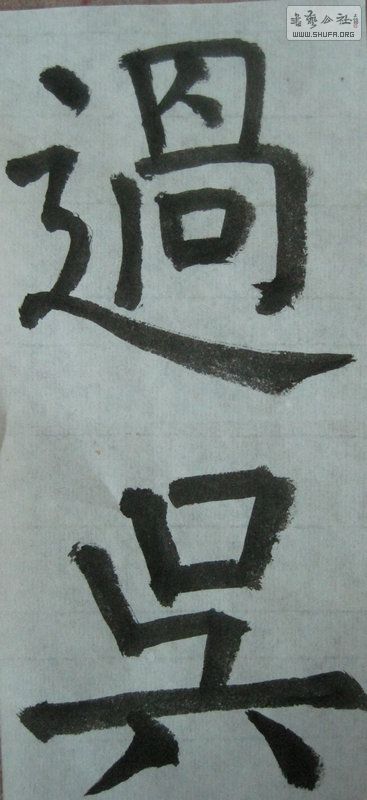 過吳
書藝公社
WWW.SHUFA.ORG